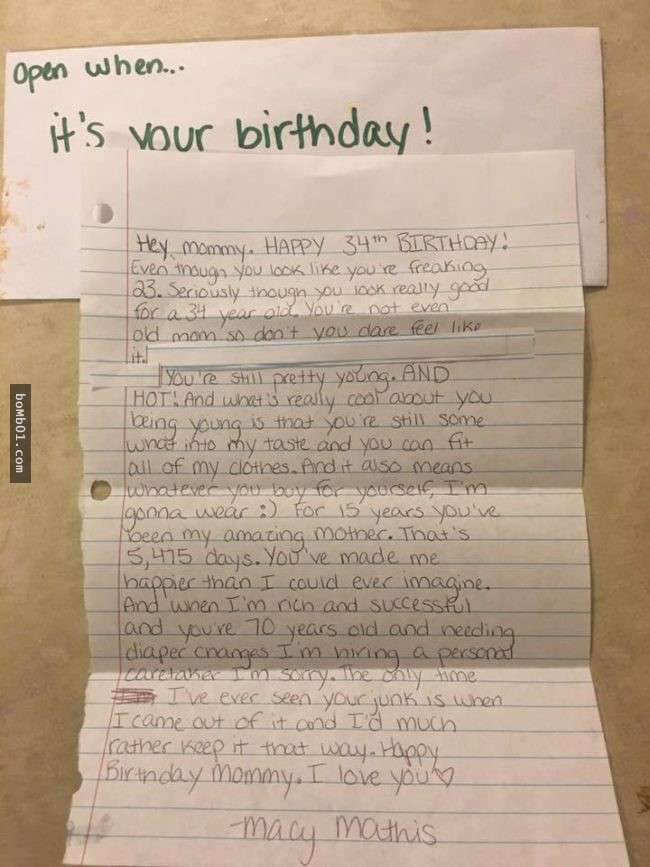 open when...
it's your birthday!
Hey, mommy. HAPPY 34th BIRTHDAY!
Even though you look like you're freaking
23. Seriously though you look really good
for a 34 year old. You're not even
old mom so don't you dare feel like
it.
You're still pretty young. AND
HOT! And what is really cool about you
being young is that you're still some
what into my taste and you can fit
all of my clothes. And it also means
whatever you buy for yourself, I'm
gonna wear :) For 15 years you've
been my amazing mother. That's
5,475 days. You've made me
happier than I could ever imagine.
And when I'm rich and successful
and you're 70 years old and needing
diaper changes I'm hiring a personal
caretaker I'm sorry. The only time
I've ever seen your junk is when
I came out of it and I'd much
rather keep it that way. Happy
Birthday Mommy. I love you♡
-Macy Mathis
boMb01.com